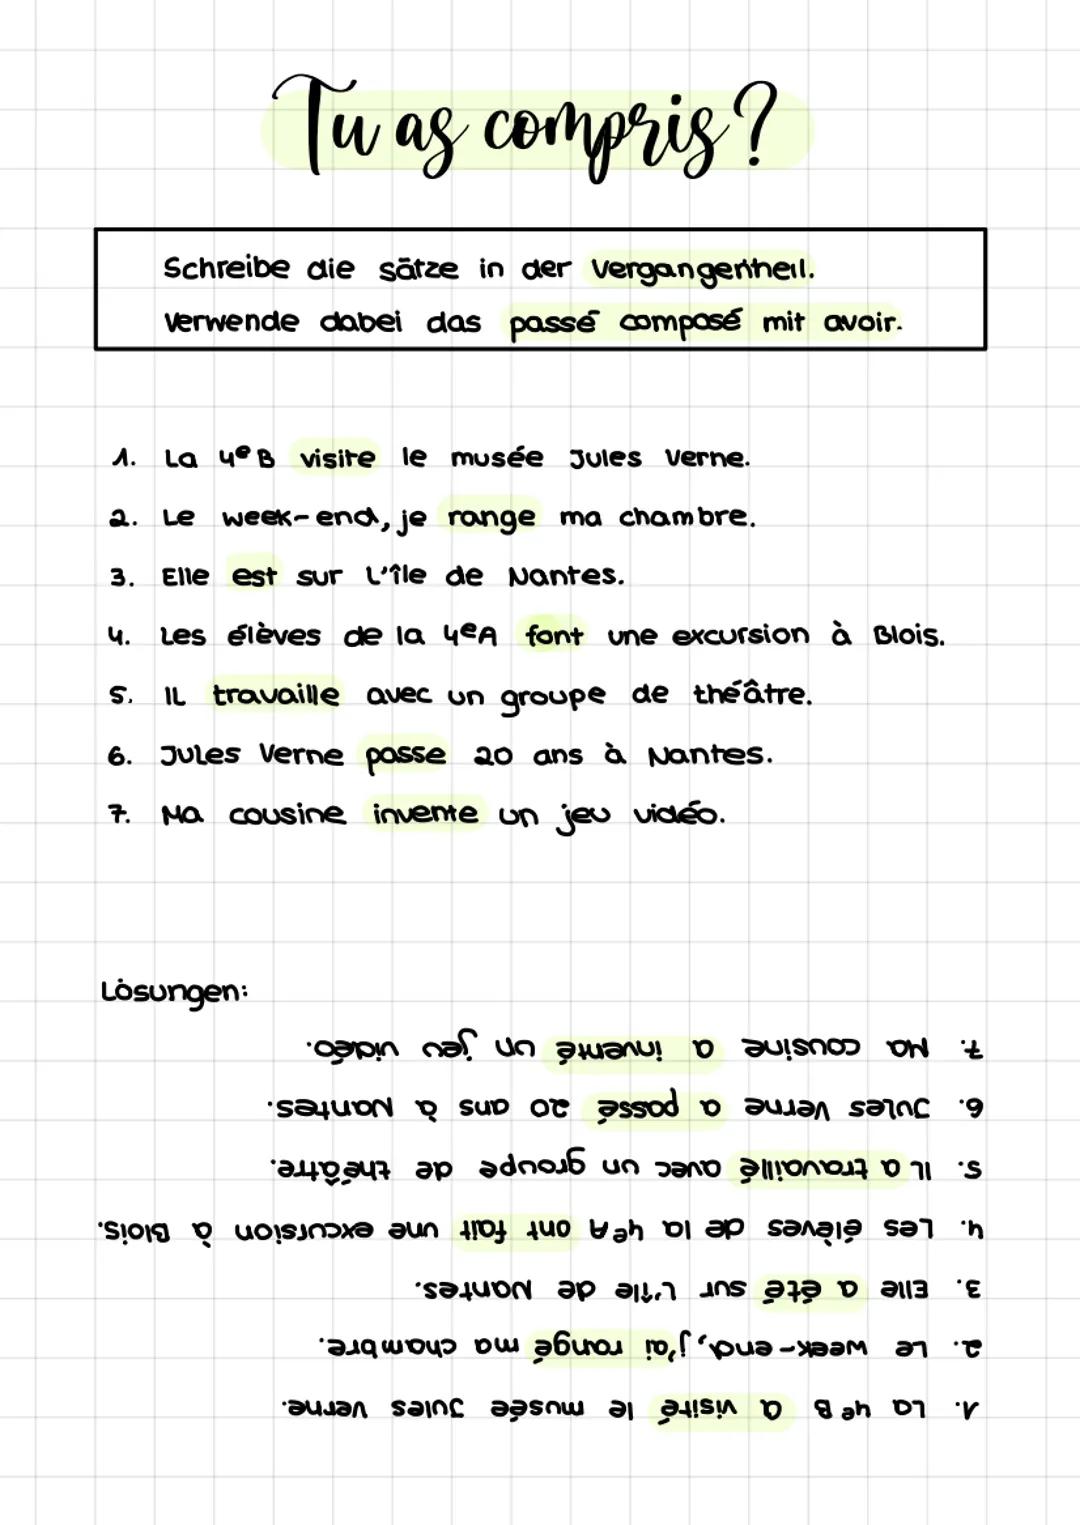 Tu as compris?
Schreibe die sätze in der Vergangenheit.
Verwende dabei das passé composé mit avoir.
1. La 4e B visite le musée Jules Verne.
2. Le week-end, je range ma chambre.
3. Elle est sur l'île de Nantes.
4. Les élèves de la 4eA font une excursion à Blois.
5. Il travaille avec un groupe de théâtre.
6. Jules Verne passe 20 ans à Nantes.
7. Ma cousine invente un jeu vidéo.
Lösungen:
1. La 4e B a visité le musée Jules Verne.
2. Le week-end, j'ai rangé ma chambre.
3. Elle a été sur l'île de Nantes.
4. Les élèves de la 4eA ont fait une excursion à Blois.
5. Il a travaillé avec un groupe de théâtre.
6. Jules Verne a passé 20 ans à Nantes.
7. Ma cousine a inventé un jeu vidéo.